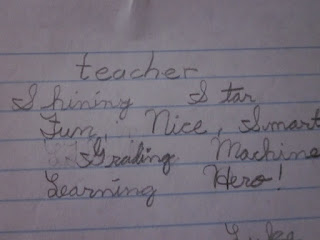 teacher
Shining Star
Fun, Nice, Smart
Grading Machine
Learning Hero!